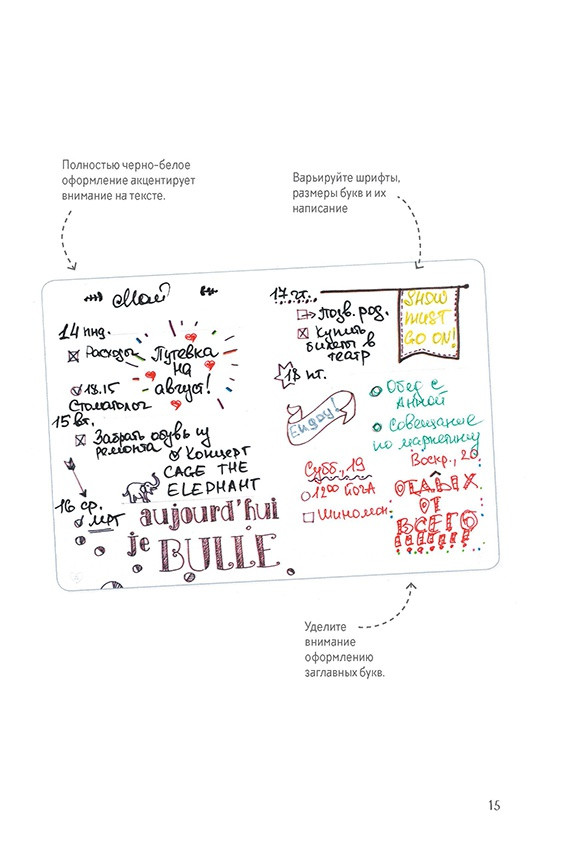 Полностью черно-белое
оформление акцентирует
внимание на тексте.
Варьируйте шрифты,
размеры букв и их
написание
Май
14 пнд.
Расходы
Путевка
на
август!
18.15
Стоматолог
15 вт.
Забрать обувь из
ремонта
Концерт
CAGE THE
ELEPHANT
16 ср.
МРТ
aujourd'hui
je
BULLE
17 чт.
Позв. род.
Купить
билеты в
театр
SHOW
MUST
GO ON!
18 пт.
Enjoy!
Обед с
Анной
Совещание
по маркетингу
Субб., 19
12⁰⁰ йога
Шиномон.
Воскр., 20
ОТДЫХ
ОТ
ВСЕГО
!!!!!!!
Уделите
внимание
оформлению
заглавных букв.
15